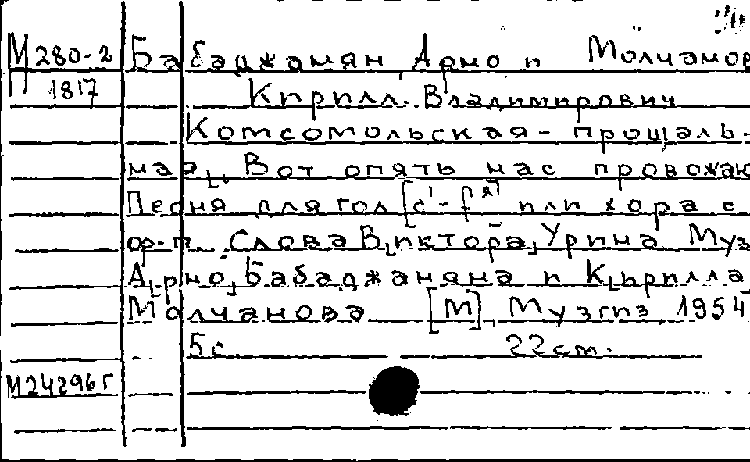 М 280-2 Бабаджамян, Арно и Молчанов
П 1817 Кирилл Владимирович
Комсомольская - прощаль-
ная. Вот опять нас провожаю
Песня для гол [c'-f"] или хора с
ф-п. Слова В[иктора] Урина Муз
А[рно] Бабаджаняна и К[ирилла]
Молчанова [М], Музгиз, 1954
5с 22cm.
М24296г